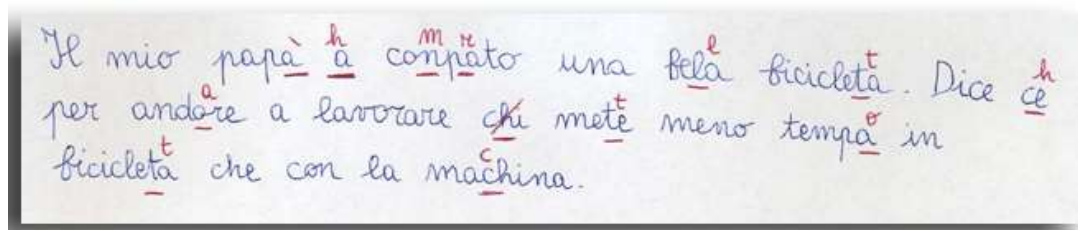 h m r l t h
Il mio papà a conpato una bela bicicleta. Dice ce
a t o
per andore a lavorare chi mete meno tempa in
t c
bicicleta che con la machina.